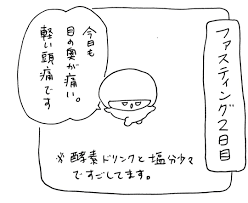 ファスティング2日目
今日も
目の奥が痛い。
軽い頭痛です
※酵素ドリンクと塩分少々
ですごしてます。